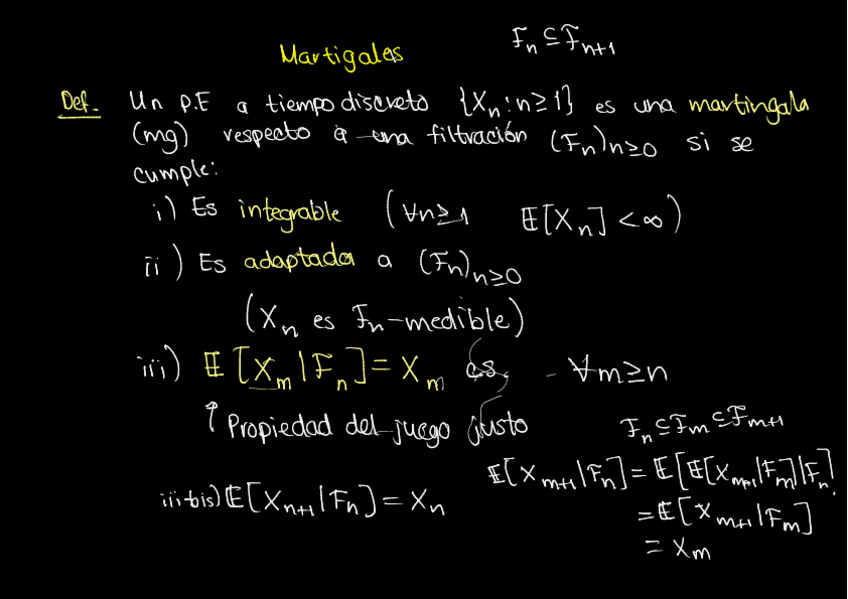 Martigales
Fn ⊆ Fn+1
Def. Un p.E a tiempo discreto {Xn : n ≥ 1} es una martingala
(mg) respecto a una filtración (Fn)n≥0 si se
cumple:
i) Es integrable (∀n≥1 E[Xn] < ∞)
ii) Es adaptada a (Fn)n≥0
(Xn es Fn-medible)
iii) E[Xm | Fn] = Xm cs, ∀m≥n
↑ Propiedad del juego justo
Fn ⊆ Fm ⊆ Fm+1
E[Xm+1 | Fn] = E[E[Xm+1 | Fm] | Fn]
iii-bis) E[Xn+1 | Fn] = Xn
= E[Xm+1 | Fm]
= Xm